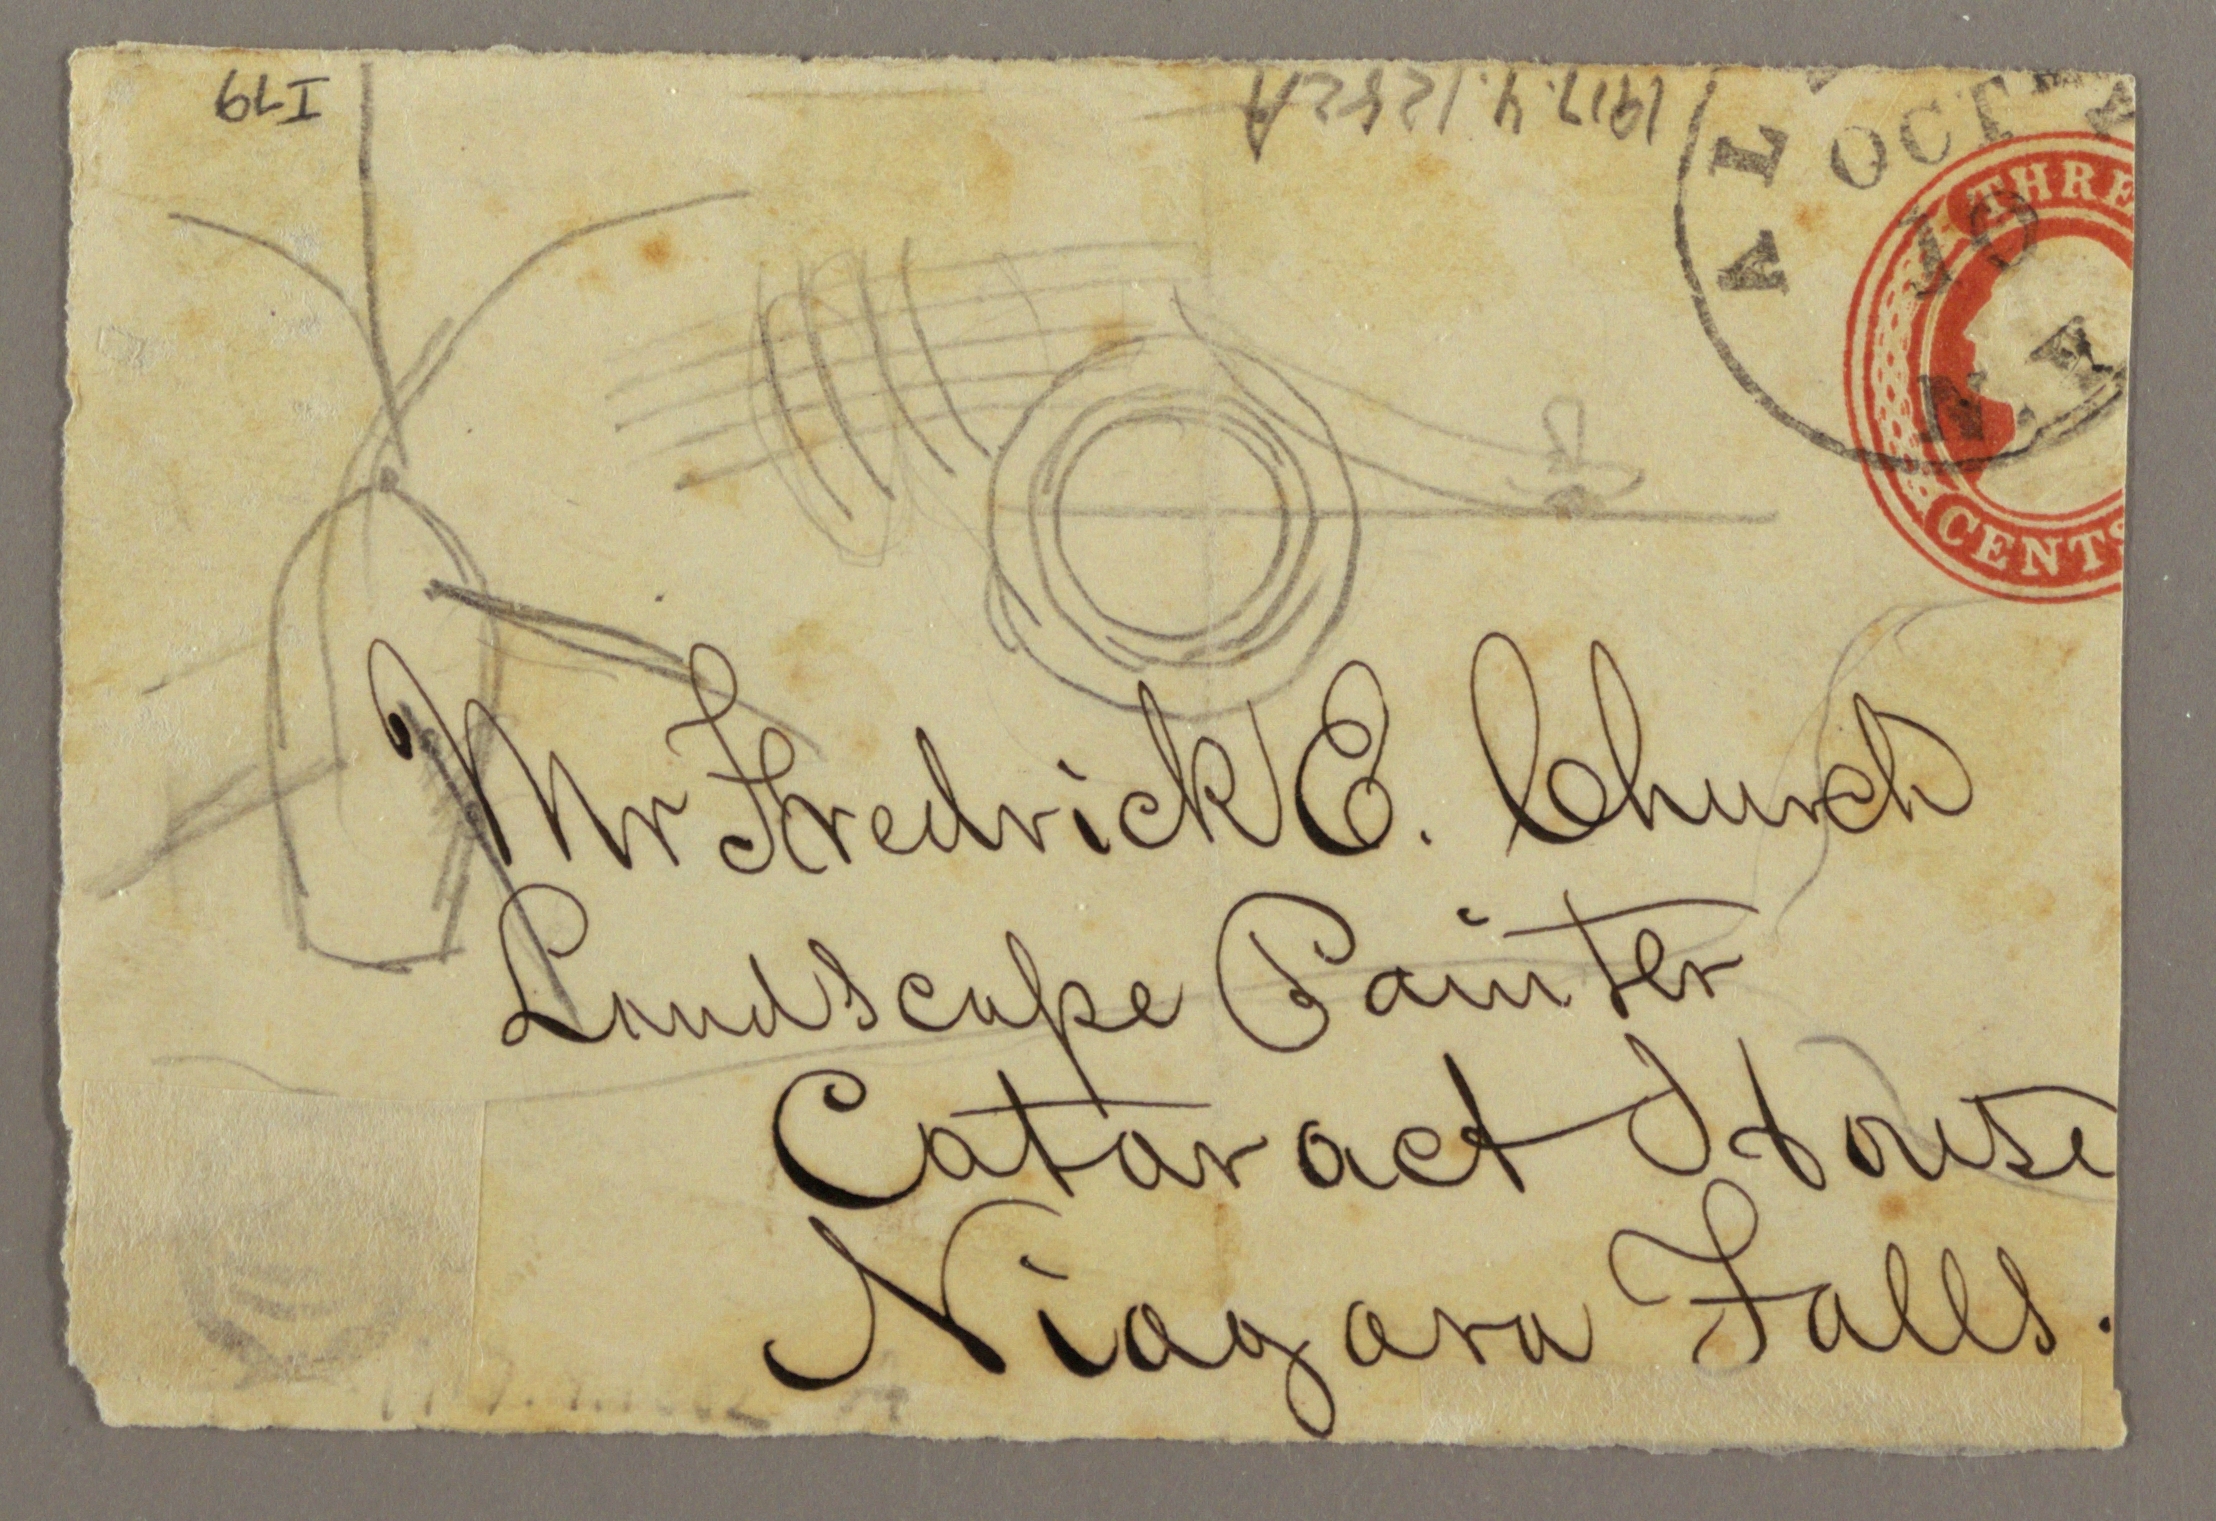 I79
1917.4.1282A
AL
OCT
10
N.Y.
THREE
CENTS
Mr Fredrick E. Church
Landscape Painter
Cataract House
Niagara Falls.